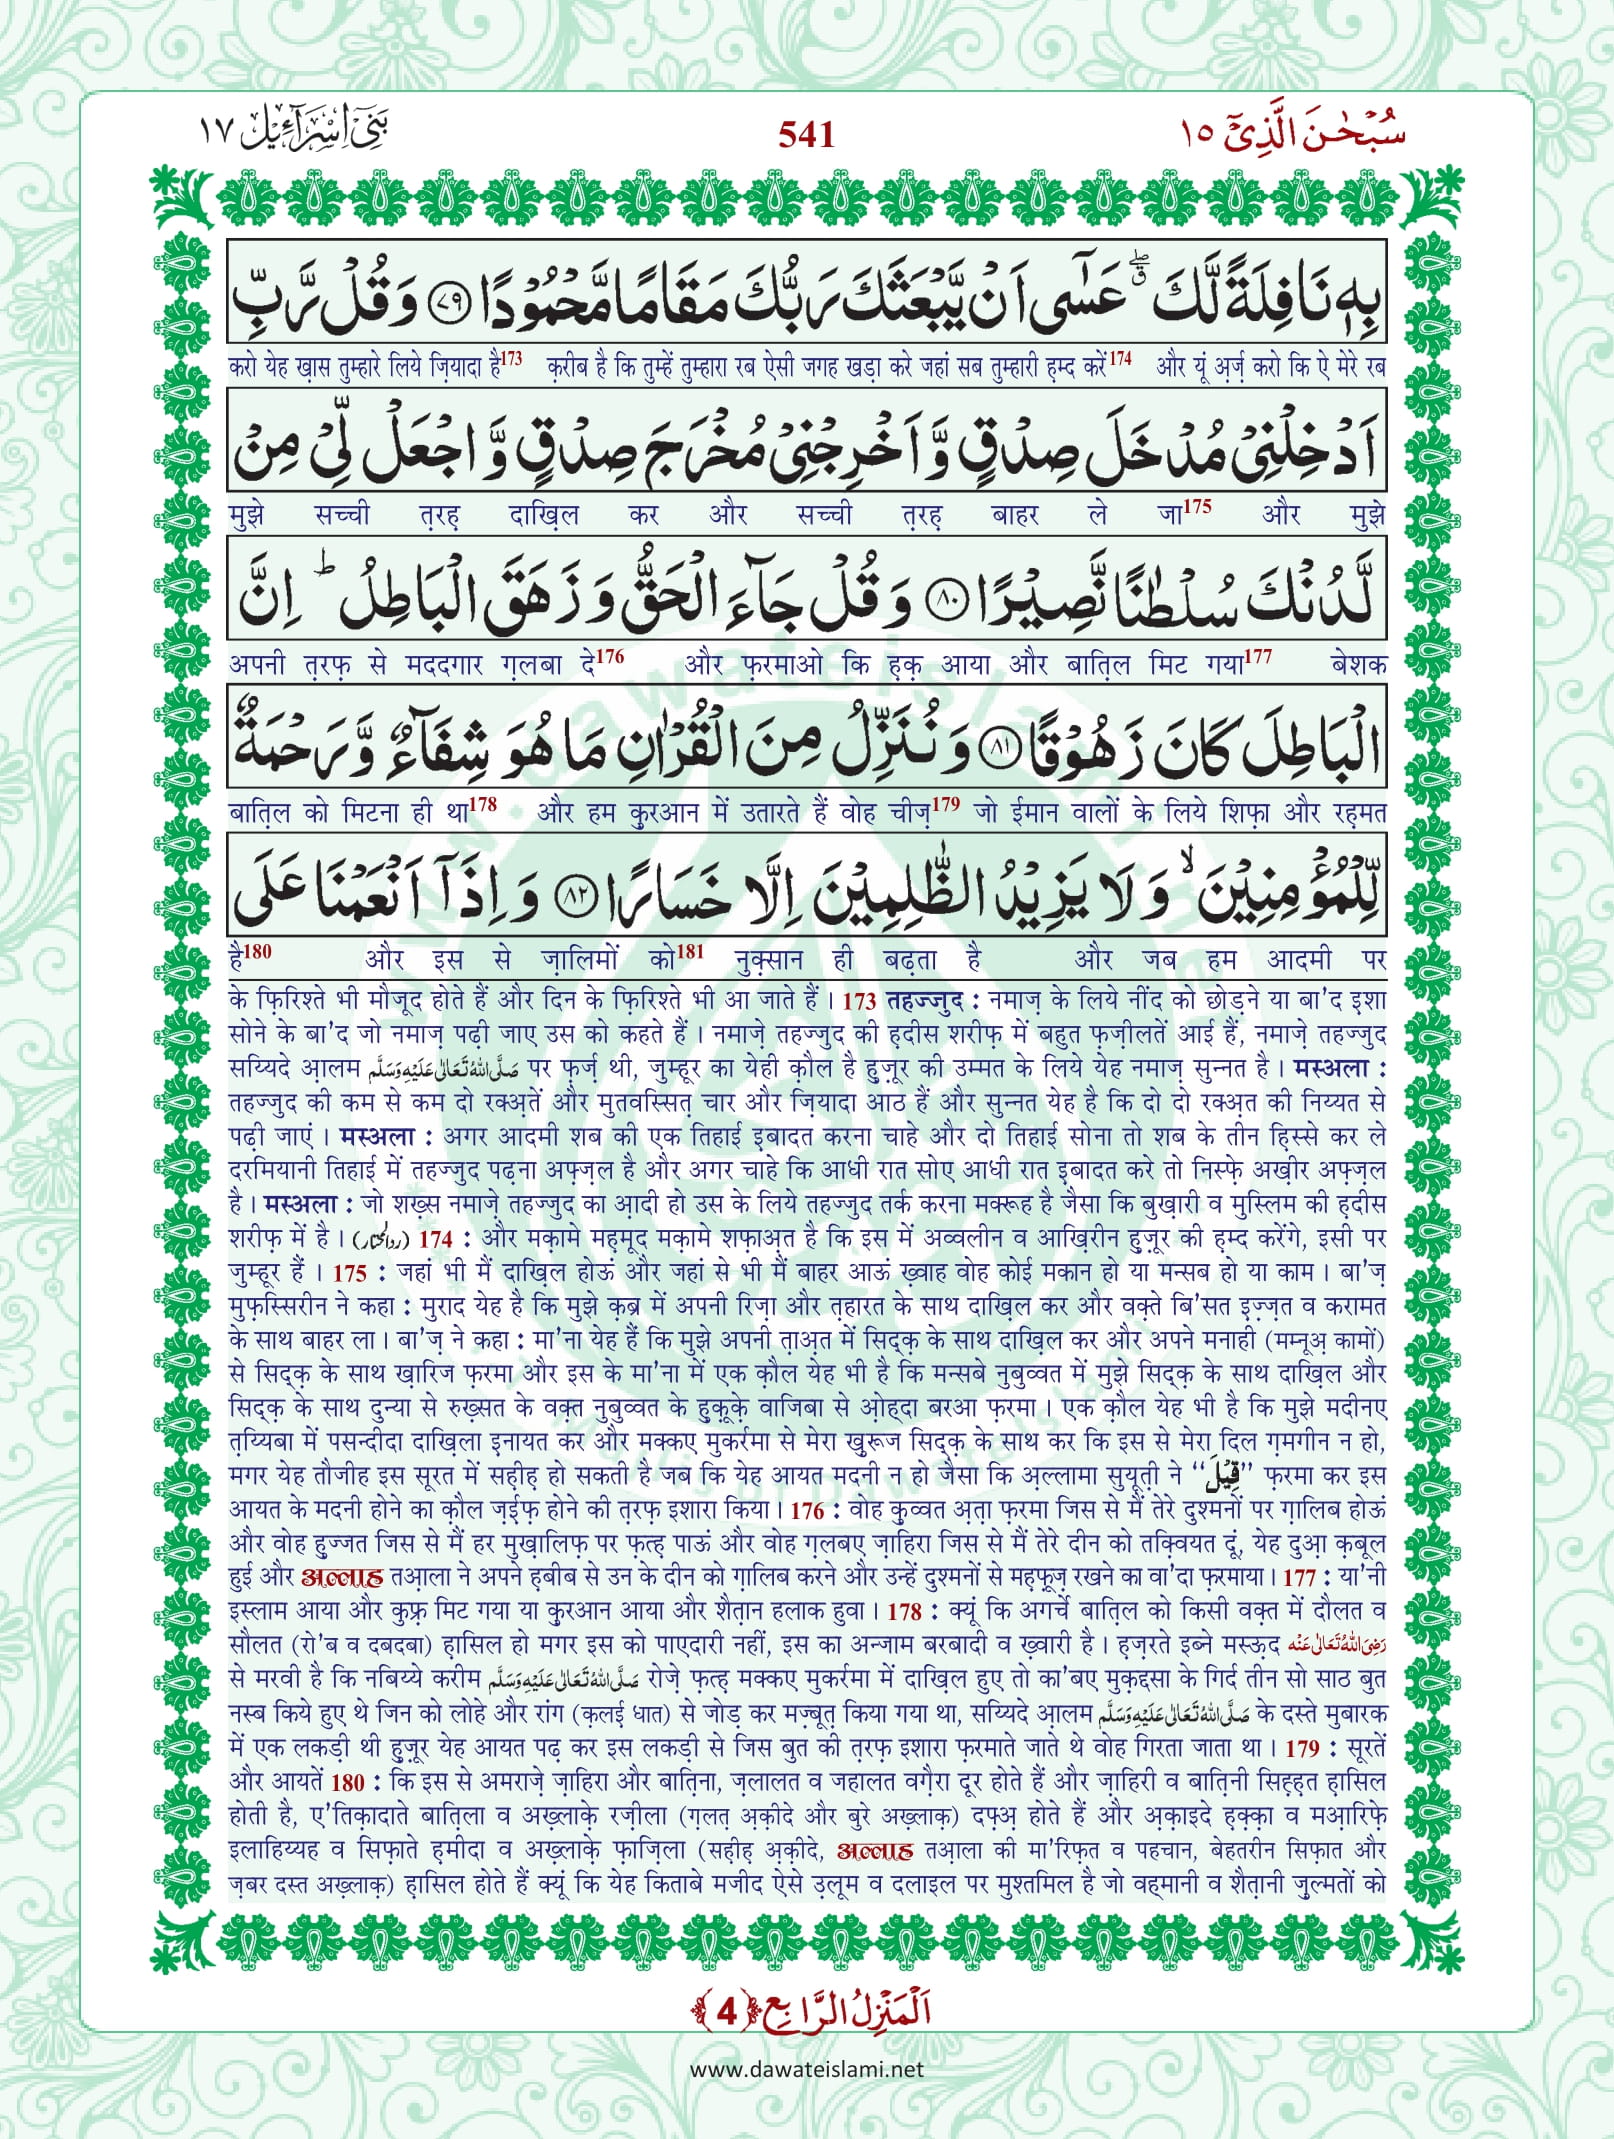 سُبْحٰنَ الَّذِىْٓ ١٥
541
بَنِىْٓ اِسْرَآءِيْل ١٧
بِهٖ نَافِلَةً لَّكَ ۖۗ عَسٰۤى اَنْ يَّبْعَثَكَ رَبُّكَ مَقَامًا مَّحْمُوْدًا ﴿٧٩﴾ وَ قُلْ رَّبِّ
करो येह ख़ास तुम्हारे लिये ज़ियादा है173 क़रीब है कि तुम्हें तुम्हारा रब ऐसी जगह खड़ा करे जहां सब तुम्हारी ह़म्द करें174 और यूं अ़र्ज़ करो कि ऐ मेरे रब
اَدْخِلْنِىْ مُدْخَلَ صِدْقٍ وَّ اَخْرِجْنِىْ مُخْرَجَ صِدْقٍ وَّ اجْعَلْ لِّىْ مِنْ
मुझे सच्ची त़रह़ दाख़िल कर और सच्ची त़रह़ बाहर ले जा175 और मुझे
لَّدُنْكَ سُلْطٰنًا نَّصِيْرًا ﴿٨٠﴾ وَ قُلْ جَآءَ الْحَقُّ وَ زَهَقَ الْبَاطِلُ ؕ اِنَّ
अपनी त़रफ़ से मददगार ग़लबा दे176 और फ़रमाओ कि ह़क़ आया और बात़िल मिट गया177 बेशक
الْبَاطِلَ كَانَ زَهُوْقًا ﴿٨١﴾ وَ نُنَزِّلُ مِنَ الْقُرْاٰنِ مَا هُوَ شِفَآءٌ وَّ رَحْمَةٌ
बात़िल को मिटना ही था178 और हम क़ुरआन में उतारते हैं वोह चीज़179 जो ईमान वालों के लिये शिफ़ा और रह़मत
لِّلْمُؤْمِنِيْنَ ۙ وَ لَا يَزِيْدُ الظّٰلِمِيْنَ اِلَّا خَسَارًا ﴿٨٢﴾ وَ اِذَاۤ اَنْعَمْنَا عَلَى
है180 और इस से ज़ालिमों को181 नुक़्सान ही बढ़ता है और जब हम आदमी पर
के फ़िरिश्ते भी मौजूद होते हैं और दिन के फ़िरिश्ते भी आ जाते हैं । 173 तहज्जुद : नमाज़ के लिये नींद को छोड़ने या बा'द इशा
सोने के बा'द जो नमाज़ पढ़ी जाए उस को कहते हैं । नमाज़े तहज्जुद की ह़दीस शरीफ़ में बहुत फ़ज़ीलतें आई हैं, नमाज़े तहज्जुद
सय्यिदे आ़लम صَلَّى اللهُ تَعَالٰى عَلَيْهِ وَسَلَّم पर फ़र्ज़ थी, जुम्हूर का येही क़ौल है हुज़ूर की उम्मत के लिये येह नमाज़ सुन्नत है । मस्अला :
तहज्जुद की कम से कम दो रक्अ़तें और मुतवस्सित़ चार और ज़ियादा आठ हैं और सुन्नत येह है कि दो दो रक्अ़त की निय्यत से
पढ़ी जाएं । मस्अला : अगर आदमी शब की एक तिहाई इ़बादत करना चाहे और दो तिहाई सोना तो शब के तीन ह़िस्से कर ले
दरमियानी तिहाई में तहज्जुद पढ़ना अफ़्ज़ल है और अगर चाहे कि आधी रात सोए आधी रात इ़बादत करे तो निस्फ़े अख़ीर अफ़्ज़ल
है । मस्अला : जो शख़्स नमाज़े तहज्जुद का आ़दी हो उस के लिये तहज्जुद तर्क करना मक्रूह है जैसा कि बुख़ारी व मुस्लिम की ह़दीस
शरीफ़ में है । (ردالمحتار) 174 : और मक़ामे मह़मूद मक़ामे शफ़ाअ़त है कि इस में अव्वलीन व आख़िरीन हुज़ूर की ह़म्द करेंगे, इसी पर
जुम्हूर हैं । 175 : जहां भी मैं दाख़िल होऊं और जहां से भी मैं बाहर आऊं ख़्वाह वोह कोई मकान हो या मन्सब हो या काम । बा'ज़
मुफ़स्सिरीन ने कहा : मुराद येह है कि मुझे क़ब्र में अपनी रिज़ा और त़हारत के साथ दाख़िल कर और वक़्ते बि'सत इ़ज़्ज़त व करामत
के साथ बाहर ला । बा'ज़ ने कहा : मा'ना येह हैं कि मुझे अपनी त़ाअ़त में सिद्क़ के साथ दाख़िल कर और अपने मनाही (मम्नूअ़ कामों)
से सिद्क़ के साथ ख़ारिज फ़रमा और इस के मा'ना में एक क़ौल येह भी है कि मन्सबे नुबुव्वत में मुझे सिद्क़ के साथ दाख़िल और
सिद्क़ के साथ दुन्या से रुख़्सत के वक़्त नुबुव्वत के हुक़ूक़े वाजिबा से ओ़ह्दा बरआ फ़रमा । एक क़ौल येह भी है कि मुझे मदीनए
त़य्यिबा में पसन्दीदा दाख़िला इनायत कर और मक्कए मुकर्रमा से मेरा ख़ुरूज सिद्क़ के साथ कर कि इस से मेरा दिल ग़मगीन न हो,
मगर येह तौजीह इस सूरत में सह़ीह़ हो सकती है जब कि येह आयत मदनी न हो जैसा कि अ़ल्लामा सुयूत़ी ने ‘‘قِيْلَ’’ फ़रमा कर इस
आयत के मदनी होने का क़ौल ज़ई़फ़ होने की त़रफ़ इशारा किया । 176 : वोह क़ुव्वत अ़त़ा फ़रमा जिस से मैं तेरे दुश्मनों पर ग़ालिब होऊं
और वोह हुज्जत जिस से मैं हर मुख़ालिफ़ पर फ़त्ह़ पाऊं और वोह ग़लबए ज़ाहिरा जिस से मैं तेरे दीन को तक़्वियत दूं, येह दुआ़ क़बूल
हुई और अल्लाह तआ़ला ने अपने ह़बीब से उन के दीन को ग़ालिब करने और उन्हें दुश्मनों से मह़फ़ूज़ रखने का वा'दा फ़रमाया । 177 : या'नी
इस्लाम आया और कुफ़्र मिट गया या क़ुरआन आया और शैत़ान हलाक हुवा । 178 : क्यूं कि अगर्चे बात़िल को किसी वक़्त में दौलत व
सौलत (रो'ब व दबदबा) ह़ासिल हो मगर इस को पाएदारी नहीं, इस का अन्जाम बरबादी व ख़्वारी है । ह़ज़रते इब्ने मस्ऊ़द رَضِىَ اللهُ تَعَالٰى عَنْه
से मरवी है कि नबिय्ये करीम صَلَّى اللهُ تَعَالٰى عَلَيْهِ وَسَلَّم रोज़े फ़त्ह़ मक्कए मुकर्रमा में दाख़िल हुए तो का'बए मुक़द्दसा के गिर्द तीन सो साठ बुत
नस्ब किये हुए थे जिन को लोहे और रांग (क़लई धात) से जोड़ कर मज़्बूत़ किया गया था, सय्यिदे आ़लम صَلَّى اللهُ تَعَالٰى عَلَيْهِ وَسَلَّم के दस्ते मुबारक
में एक लकड़ी थी हुज़ूर येह आयत पढ़ कर इस लकड़ी से जिस बुत की त़रफ़ इशारा फ़रमाते जाते थे वोह गिरता जाता था । 179 : सूरतें
और आयतें 180 : कि इस से अमराज़े ज़ाहिरा और बात़िना, ज़लालत व जहालत वग़ैरा दूर होते हैं और ज़ाहिरी व बात़िनी सिह़्ह़त ह़ासिल
होती है, ए'तिक़ादाते बात़िला व अख़्लाक़े रज़ीला (ग़लत़ अ़क़ीदे और बुरे अख़्लाक़) दफ़्अ़ होते हैं और अ़क़ाइदे ह़क़्क़ा व मआ़रिफ़े
इलाहिय्यह व सिफ़ाते ह़मीदा व अख़्लाक़े फ़ाज़िला (सह़ीह़ अ़क़ीदे, अल्लाह तआ़ला की मा'रिफ़त व पहचान, बेहतरीन सिफ़ात और
ज़बर दस्त अख़्लाक़) ह़ासिल होते हैं क्यूं कि येह किताबे मजीद ऐसे उ़लूम व दलाइल पर मुश्तमिल है जो वह्मानी व शैत़ानी ज़ुल्मतों को
اَلْمَنْزِلُ الرَّابِع ﴿4﴾
www.dawateislami.net